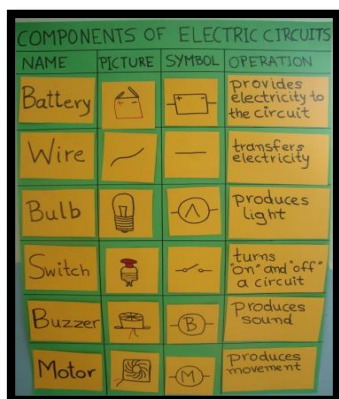 COMPONENTS OF ELECTRIC CIRCUITS
NAME PICTURE SYMBOL OPERATION
Battery + provides
electricity to
the circuit
Wire transfers
electricity
Bulb produces
light
Switch turns
"on" and "off"
a circuit
Buzzer B produces
sound
Motor M produces
movement